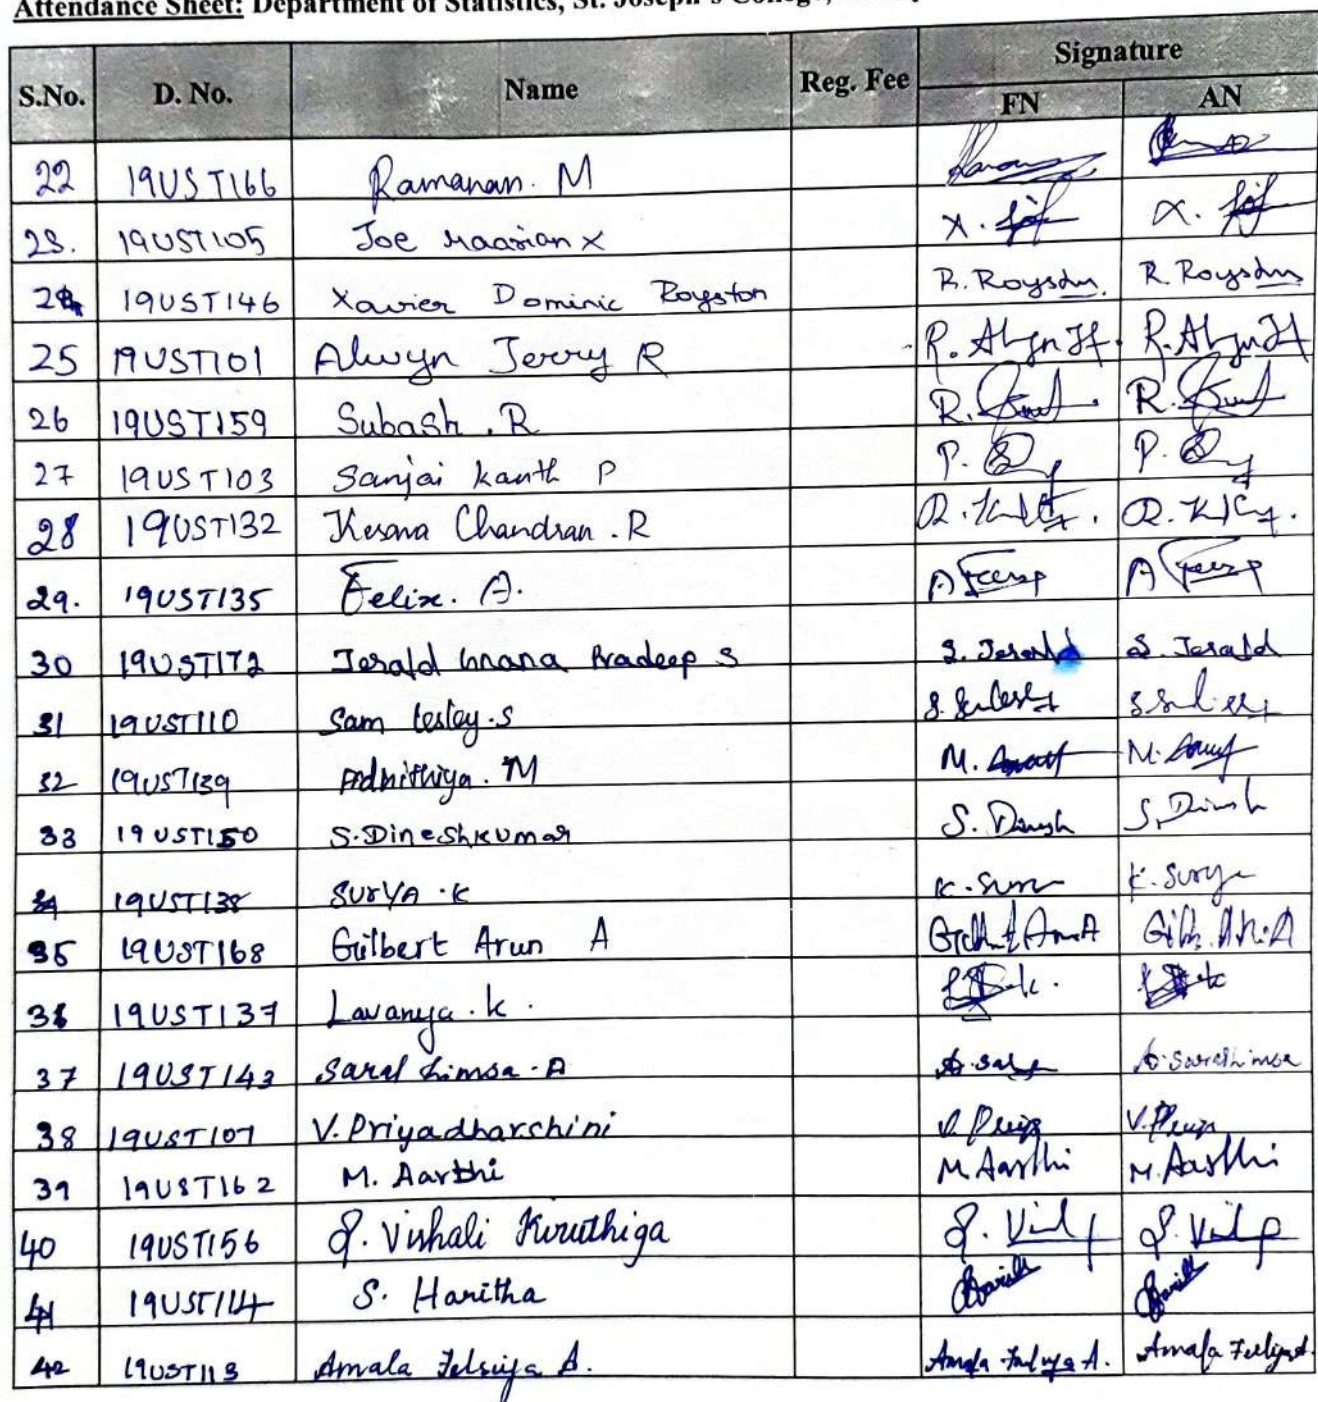 Attendance Sheet: Department of Statistics, St. Joseph's College,
S.No. D. No. Name Reg. Fee Signature
FN AN
22 19UST166 Ramanan. M
23. 19UST105 Joe Maarian X X. X.
24 19UST146 Xavier Dominic Royston R. Royston R. Royston
25 19UST101 Alwyn Jerry R R. R.
26 19UST159 Subash. R R. R.
27 19UST103 Sanjai Kanth P P. P.
28 19UST132 Kesava Chandran. R R. R.
29. 19UST135 Felix. A. A A
30 19UST172 Jerald Gnana Pradeep S S. Jerald S. Jerald
31 19UST110 Sam Lesley.S S. S.
32 19UST139 Adhithiya. M M. M.
33 19UST150 S.Dineshkumar S. Dinesh S. Dinesh
34 19UST138 SURYA.K K. K. Surya
35 19UST168 Gilbert Arun A
36 19UST137 Lavanya. K. k. k
37 19UST143 Saral Limsa.A A. A. Saral limsa
38 19UST107 V.Priyadharshini V. Priya V. Priya
39 19UST162 M. Aarthi M. Aarthi M. Aarthi
40 19UST156 J. Vishali Kiruthiga
41 19UST114 S. Haritha
42 19UST113 Amala Felsiya A. Amala A. Amala